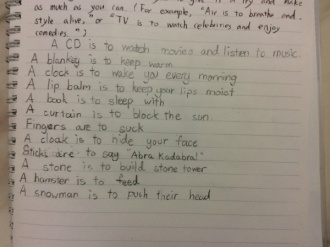 as much as you can. (For example, "Air is to breathe and
style alive," or "TV is to watch celebrities and enjoy
comedies.")
A CD is to watch movies and listen to music.
A blankey is to keep warm
A clock is to make you every morning
A lip balm is to keep your lips moist
A book is to sleep with
A curtain is to block the sun.
Fingers are to suck
A cloak is to hide your face
Sticks are to say "Abra Kadabra!"
A stone is to build stone tower
A hamster is to feed
A snowman is to push their head